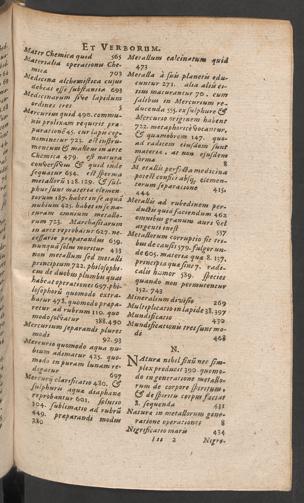 ET VERBORUM.
Mater Chemica quid 565
Materialia operationis Che-
mica 703
Medicina alchemistica cujus
debeat esse substantia 693
Medicinarum sive lapidum
ordines tres
Mercurius quid 490. commu-
nis prolixam requirit præ-
parationem
nominetur 722. est instru-
mentum & malleus in arte
Chemica 479. est natura
& quid inde
sequatur 654. est sperma
metallorum 128. 129. & sul-
phur sunt materia elemen-
torum 157. habet in se aquã
nubium 225. habet in se na-
turam omnium metallo-
rum 723.
in arte reprobatur 627. ne-
cessario præparandus 659.
nunquam solus moritur 433
non metallum sed metalli
principium 722. philosopho-
rum de duobus plumbis quas
habeat operationes 697. phi-
losophorũ quomodo extra-
hatur 478. quomodo præpa-
retur ad rubeum 110. quo
modo solvatur 388. 490
Mercurium separandi plures
modi 92. 93
Mercurio quomodo aqua nu-
bium adimatur 425. quo-
modo in puram lunam re-
digatur 697
Mercurij clarificatio 480. &
sulphuris aqua diaphana
reprobantur 601. solutio
304. sublimatio ad rubrũ
449. præparandi modus
280
Metallum calcinatum quid
473
Metalla à suis planetis edu-
cuntur 271. alia alijs ci-
tius maturantur 70. cum
salibus in Mercurium re-
ducenda 555. ex sulphure &
Mercurio originem habent
722. metaphoricè vocantur,
& quamobrem 147. quo-
ad radicem ejusdem sunt
materiæ, at non ejusdem
formæ 8
Metallis perfecta medicina
potest confici absq; elemen-
torum separatione 415.
444
Metalli ad rubedinem per-
ducti quid faciendum 462
omnibus granum auri vel
argenti inest 537
Metallorum corruptio fit tri-
bus de causis 579. fulgor un-
de 605. materia quæ 8. 117.
principia quæ sint 7. radi-
calis humor 589. species
quando non permutentur
352. 743
Mineralium divisio 269
Multiplicatio in lapide 38. 397
Mundificatio 452
Mundificationis tres sunt mo-
di 468
N.
Natura nihil sinit nec sim-
plex producit 390. quomo-
do in generatione metallo-
rum de corpore spiritum,
& de spiritu corpus faciat
8. sequenda 431
Naturæ in metallorum gene-
ratione operationes 8
Nigrificatio maris 434
Iii 2 Nigre-